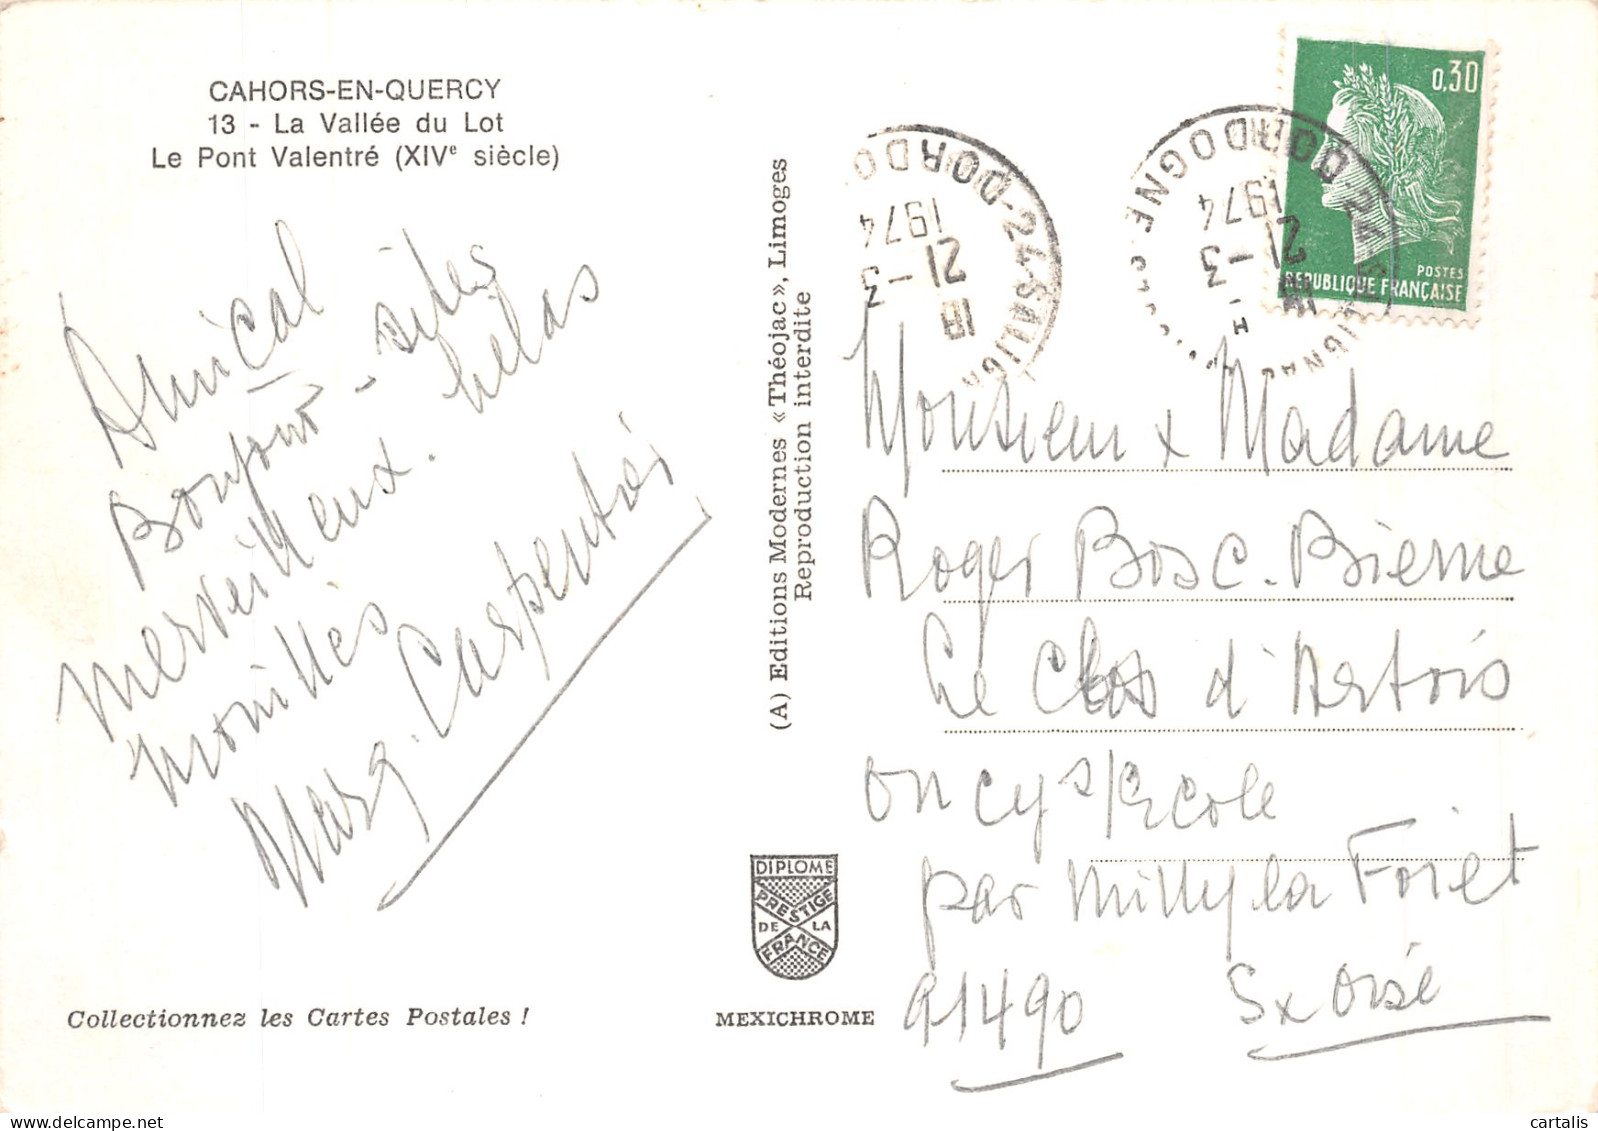 CAHORS-EN-QUERCY
13 - La Vallée du Lot
Le Pont Valentré (XIVe siècle)
Amical
Bonjour - sites
merveilleux. hélas
mouillés
Marg. Carpentier
Collectionnez les Cartes Postales !
(A) Editions Modernes «Théojac», Limoges
Reproduction interdite
DIPLOME
PRESTIGE
DE LA
FRANCE
MEXICHROME
24 SALIGN
DORDO
18
21 - 3
1974
24 SALIGNAC
DORDOGNE
18 H
21 - 3
1974
0,30
POSTES
REPUBLIQUE FRANÇAISE
Monsieur & Madame
Roger Bosc. Bierne
Le Clos d'Artois
Oncy s/Ecole
par Milly la Forêt
91490 S x Oise
cartalis